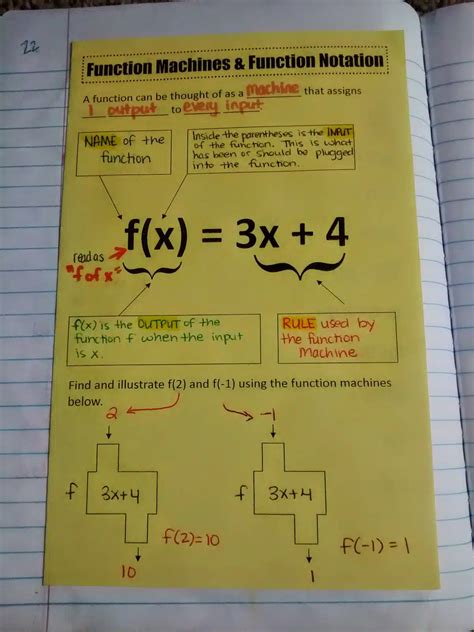 22
Function Machines & Function Notation
A function can be thought of as a machine that assigns
1 output to every input.
NAME of the
function
Inside the parentheses is the INPUT
of the function. This is what
has been or should be plugged
into the function.
f(x) = 3x + 4
read as
"f of x"
f(x) is the OUTPUT of the
function f when the input
is x.
RULE used by
the function
Machine
Find and illustrate f(2) and f(-1) using the function machines
below.
2
-1
f 3x+4
f 3x+4
f(2)=10
f(-1) = 1
10
1